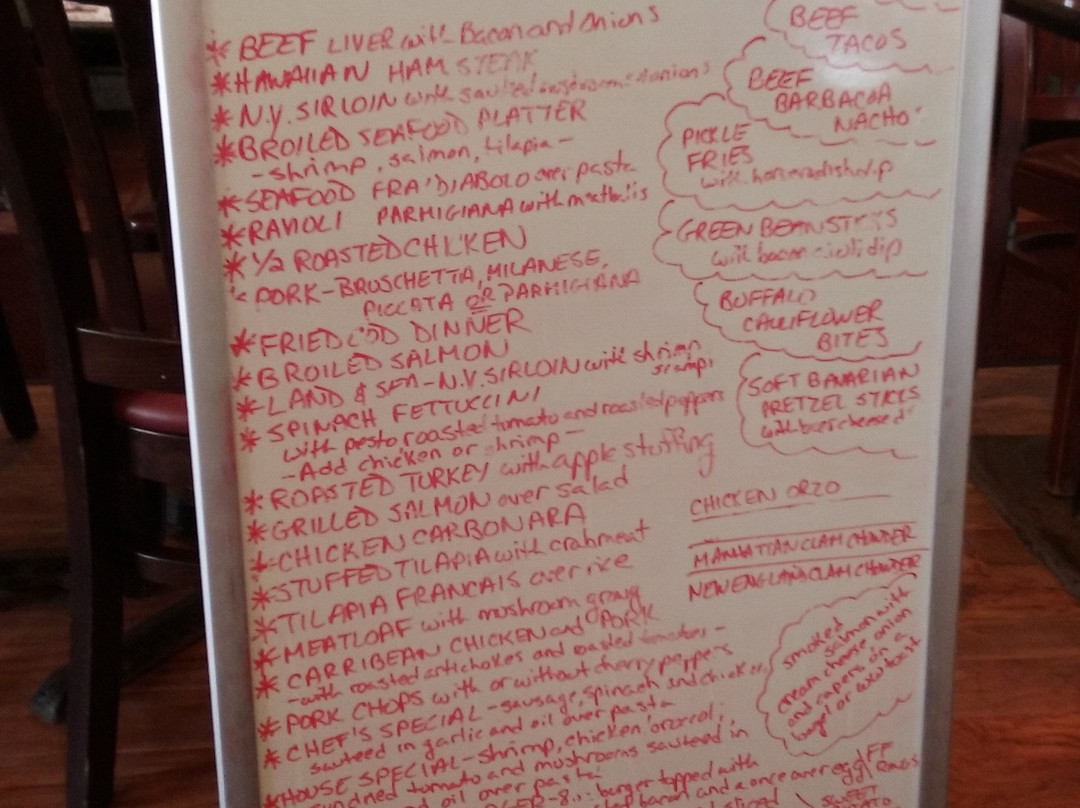 * BEEF LIVER with Bacon and onions
* HAWAIIAN HAM STEAK
* N.Y. SIRLOIN with sauteed mushrooms & onions
* BROILED SEAFOOD PLATTER
- shrimp, salmon, tilapia -
* SEAFOOD FRA'DIABOLO over pasta
* RAVIOLI PARMIGIANA with meatballs
* 1/2 ROASTED CHICKEN
* PORK - BRUSCHETTA, MILANESE,
PICCATA OR PARMIGIANA
* FRIED COD DINNER
* BROILED SALMON
* LAND & SEA - N.Y. SIRLOIN with shrimp
scampi
* SPINACH FETTUCCINI
with pesto roasted tomato and roasted peppers
- Add chicken or shrimp -
* ROASTED TURKEY with apple stuffing
* GRILLED SALMON over salad
* CHICKEN CARBONARA
* STUFFED TILAPIA with crabmeat
* TILAPIA FRANCAIS over rice
* MEATLOAF with mushroom gravy
* CARRIBEAN CHICKEN and PORK
- with roasted artichokes and roasted tomatoes -
* PORK CHOPS with or without cherry peppers
* CHEF'S SPECIAL - sausage, spinach and chicken
sauteed in garlic and oil over pasta
* HOUSE SPECIAL - shrimp, chicken, broccoli,
sundried tomato and mushrooms sauteed in
and oil over pasta
burger topped with
bacon and a once over egg
BEEF
TACOS
BEEF
BARBACOA
NACHO
PICKLE
FRIES
with horseradish dip
GREEN BEAN STICKS
with bacon aioli dip
BUFFALO
CAULIFLOWER
BITES
SOFT BAVARIAN
PRETZEL STICKS
with beer cheese
CHICKEN ORZO
MANHATTAN CLAM CHOWDER
NEW ENGLAND CLAM CHOWDER
smoked
salmon with
cream cheese onion
and capers on a
bagel or
SWEET